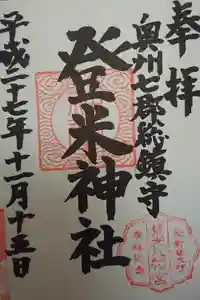 奉拝
奥州七郡総鎮守
登米神社
平成二十七年十一月十五日